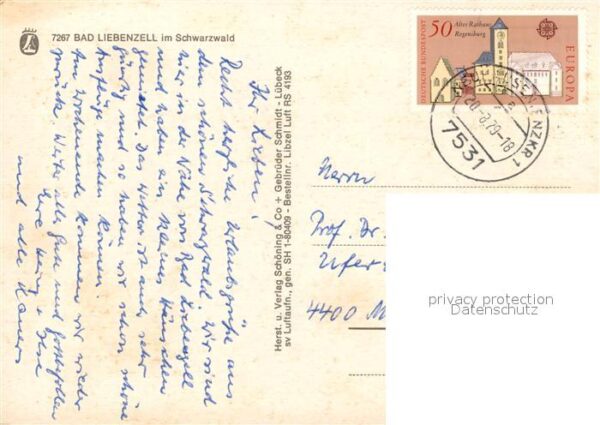 7267 BAD LIEBENZELL im Schwarzwald
Ihr Lieben!
Recht herzliche Urlaubsgrüße aus
dem schönen Schwarzwald. Wir sind
hier in der Nähe von Bad Liebenzell
und haben ein kleines Häuschen
Das Wetter ist auch sehr
günstig und so haben wir schon schöne
Ausflüge machen können.
Am Wochenende kommen wir wieder
zurück. Weiter alles Gute und
Eure
und alle
Herst. u. Verlag Schöning & Co + Gebrüder Schmidt - Lübeck
sv Luftaufn., gen. SH 1-80409 - Bestellnr. Libzel Luft RS 4193
50
Altes Rathaus
Regensburg
DEUTSCHE BUNDESPOST
EUROPA
ENZKR 1
20.-8.79-18
7531
Herrn
Prof. Dr.
Ufer
4400 M
privacy protection
Datenschutz